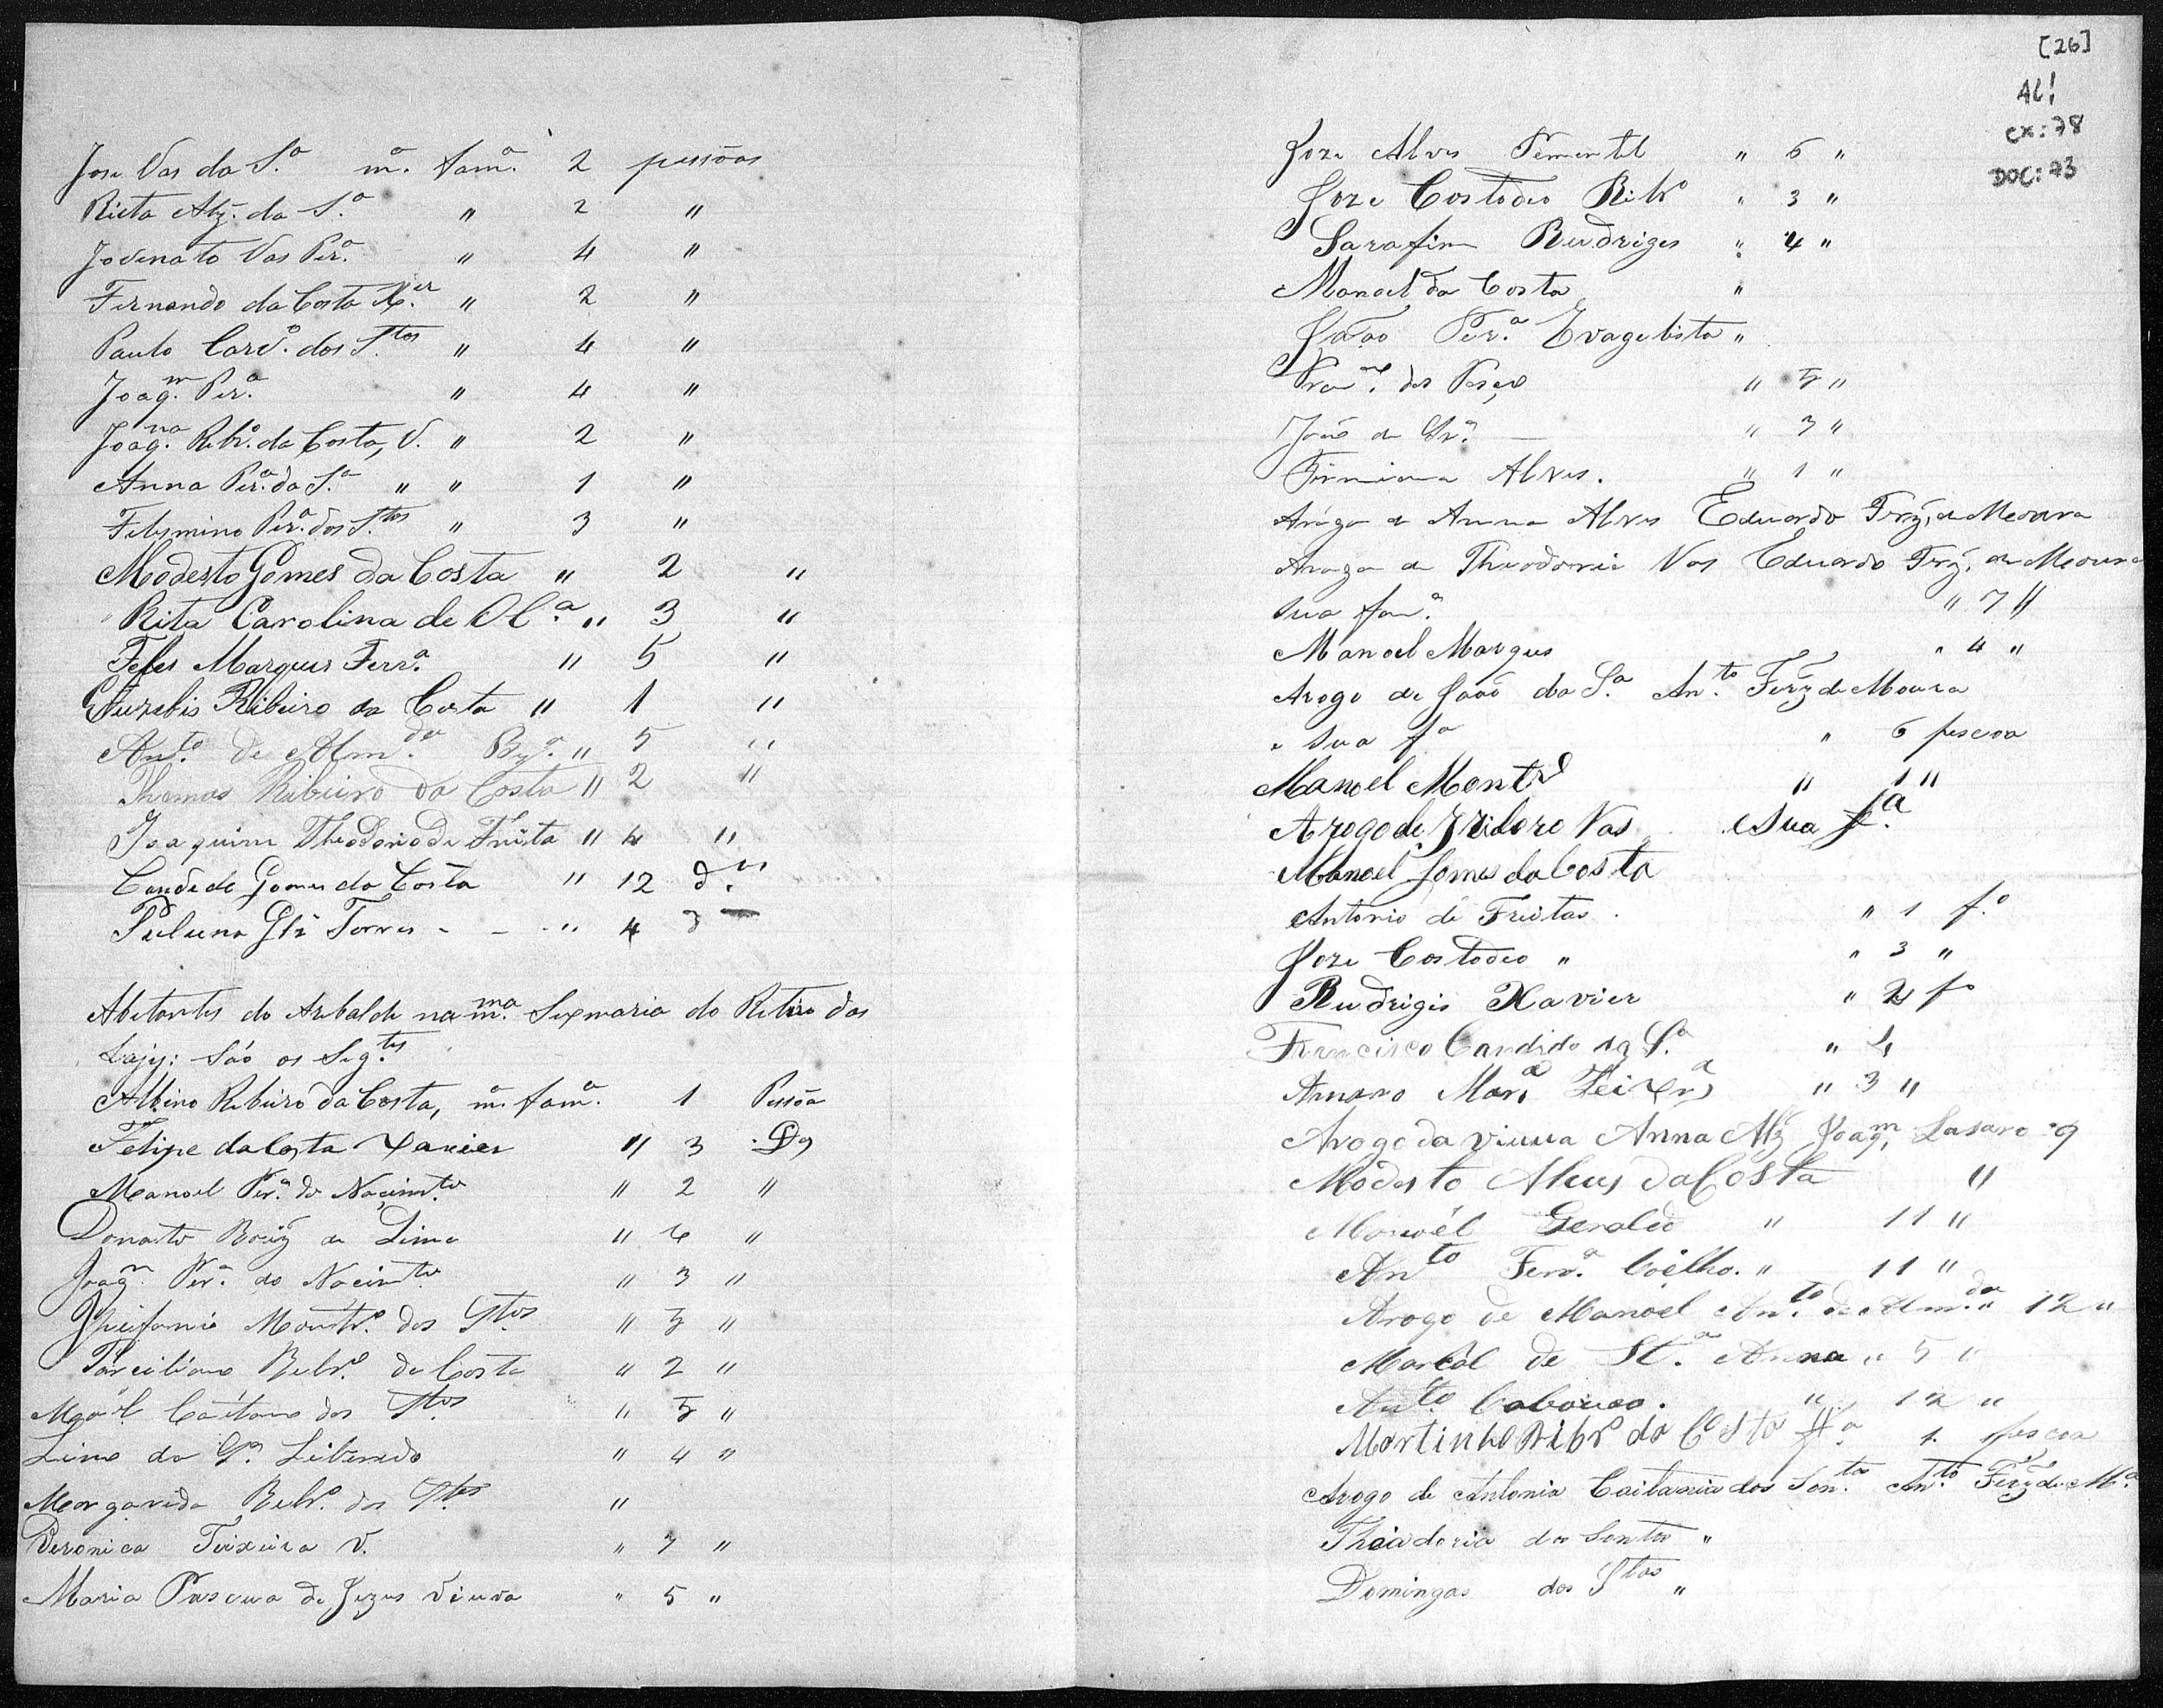 Jose Vas da S.ª m.ª fam.ª 2 pessõas
Rieta Alz. da S.ª " 2 "
Jovenato Vas Per.ª " 4 "
Fernando da Costa X.er " 2 "
Paulo Card.º dos S.tos " 4 "
Joaq.m Per.ª " 4 "
Joaq.na Rebr.º da Costa, V. " 2 "
Anna Per.ª da S.ª " " 1 "
Felesmino Per.ª dos S.tos " 3 "
Modesto Gomes da Costa " 2 "
Rita Carolina de Ol.ª " 3 "
Feles Marques Ferr.ª " 5 "
Euzebis Ribeiro da Costa " 1 "
An.to de Alm.da " 5 "
Thomas Ribeiro da Costa " 2 "
Joaquim Theodorio de Freita " 4 "
Candido Gomes da Costa " 12 d.os
Torres - - " 4 d
Abitantes do Arebalde na m.ma Sexmaria do Retiro das
Lajes: São os Seg.tes
Albino Ribeiro da Costa, m.ª fam.ª 1 Pessõa
Felipe da Costa Xavier " 3 Do
Manoel Per.ª do Nacim.to " 2 "
Donato Roiz de Lima " 4 "
Joaq.m Per.ª do Nacim.to " 3 "
Epiefanio Montr.º dos Stos " 5 "
Tarciliano Rebr.º da Costa " 2 "
Mao.el Caitano dos Stos " 5 "
Lino da S.ª Liberado " 4 "
Margarida Rebr.º dos Stos "
Veronica Teixeira V. " 7 "
Maria Pascua de Jezus Viuva " 5 "
[26]
AL!
CX: 78
DOC: 73
Joze Alves Pementel " 6 "
Joze Costodeo Rebr.º " 3 "
Sarafim Rudriges " 4 "
Manoel da Costa "
Joãao Per.ª Evagelista "
" 5 "
João da Sr.ª " 3 "
Firmiana Alves. " 1 "
Arogo de Anna Alves Eduardo Frz. de Moura
Arogo de Theodorio Vas Eduardo Frz. de Moura
sua fam.ª " 7 "
Manoel Marques " 4 "
Arogo de Joaõ da S.ª An.to Ferz de Moura
e sua f.ª " 6 pescoa
Manoel Montr.º " 1 "
Arogo de Jzidoro Vas e Sua f.ª
Manoel Gomes da Costa
Antonio de Freitas " 1 f.º
Joze Costodeo " " 3 "
Rudrigis Xavier " 2 f.º
Francisco Candido da S.ª " 4
Amaro Mar. Teixr.ª " 3 "
Arogo da viuva Anna Alz Joaq.m Lasaro 9
Modesto Alves da Costa "
Manoel Geraldo " 11 "
An.to Ferr.ª Coêlho. " 11 "
Arogo de Manoel An.to de Alm.da " 12 "
Marcal de St.ª Anna " 5 "
An.to Caboueo. " 12 "
Martinho Ribr.º da Costa f.ª 1. pescoa
Arogo de Antonia Caitania dos San.tos An.to Ferz de M.ª
Theadoria dos Santos "
Domingas dos Stos "